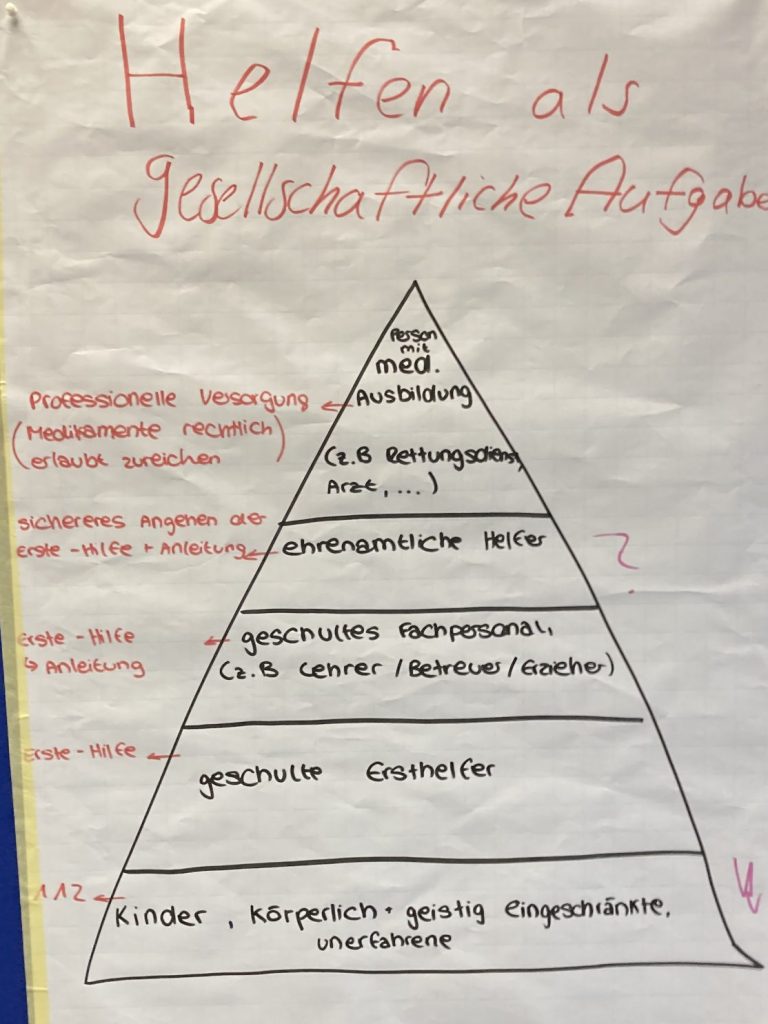 Helfen als
gesellschaftliche Aufgabe
Person
mit
med.
Ausbildung
(z.B Rettungsdienst,
Arzt, ...)
Professionelle Versorgung
(Medikamente rechtlich
erlaubt zureichen)
ehrenamtliche Helfer
sichereres Angehen der
Erste-Hilfe + Anleitung
?
geschultes Fachpersonal,
(z.B Lehrer / Betreuer / Erzieher)
Erste-Hilfe
↳ Anleitung
geschulte Ersthelfer
Erste-Hilfe
112
Kinder, körperlich + geistig eingeschränkte,
unerfahrene